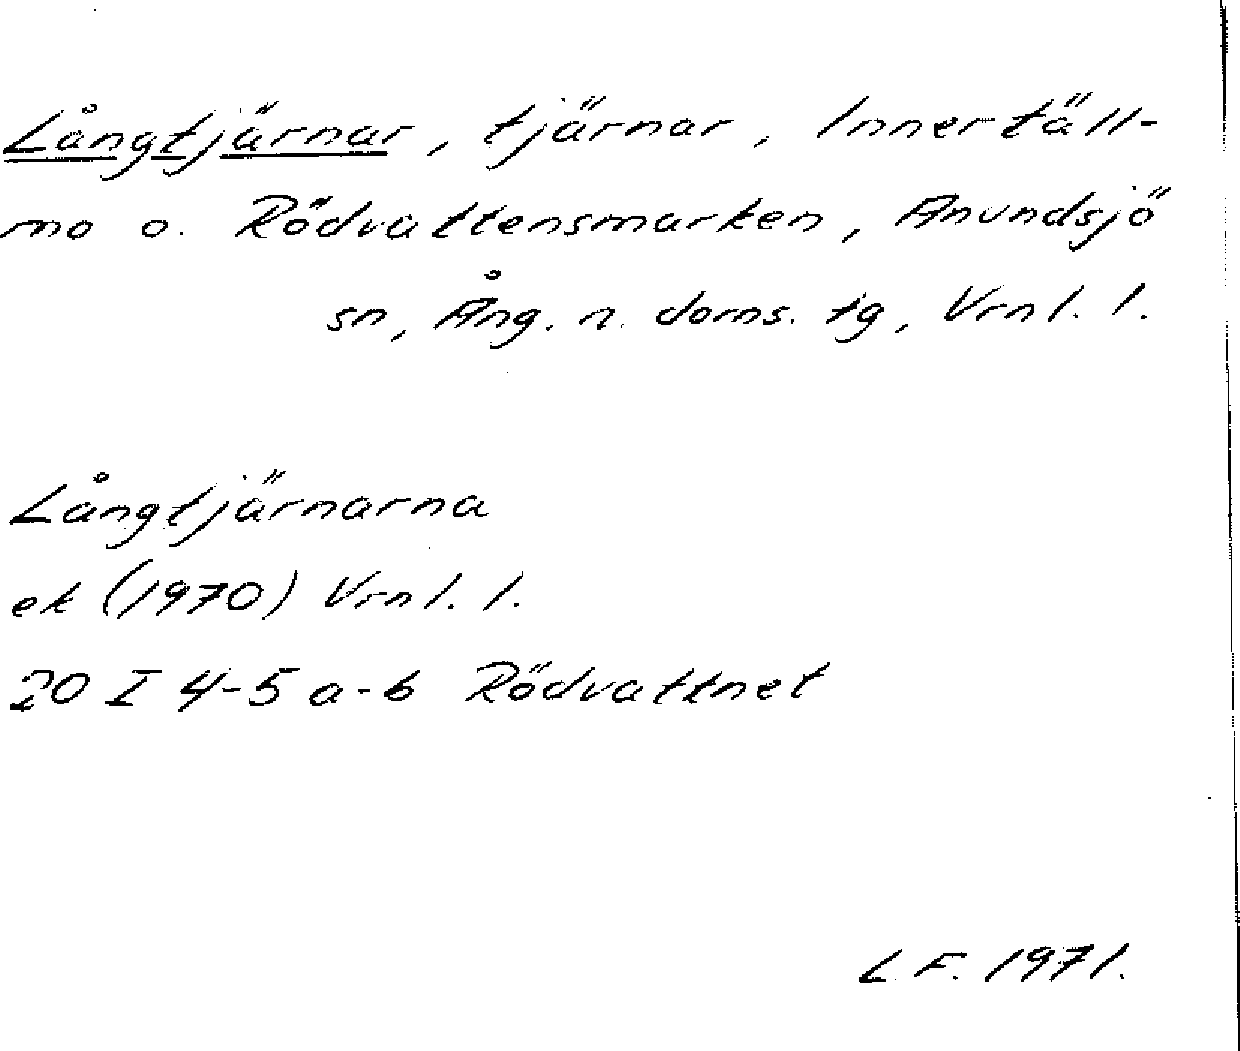 Långtjärnar, tjärnar, Innertäll-
mo o. Rödvattensmarken, Anundsjö
sn, Ång. n. doms. tg, Vrnl. l.
Långtjärnarna
ek (1970) Vrnl. l.
20 I 4-5 a-b Rödvattnet
L F. 1971.